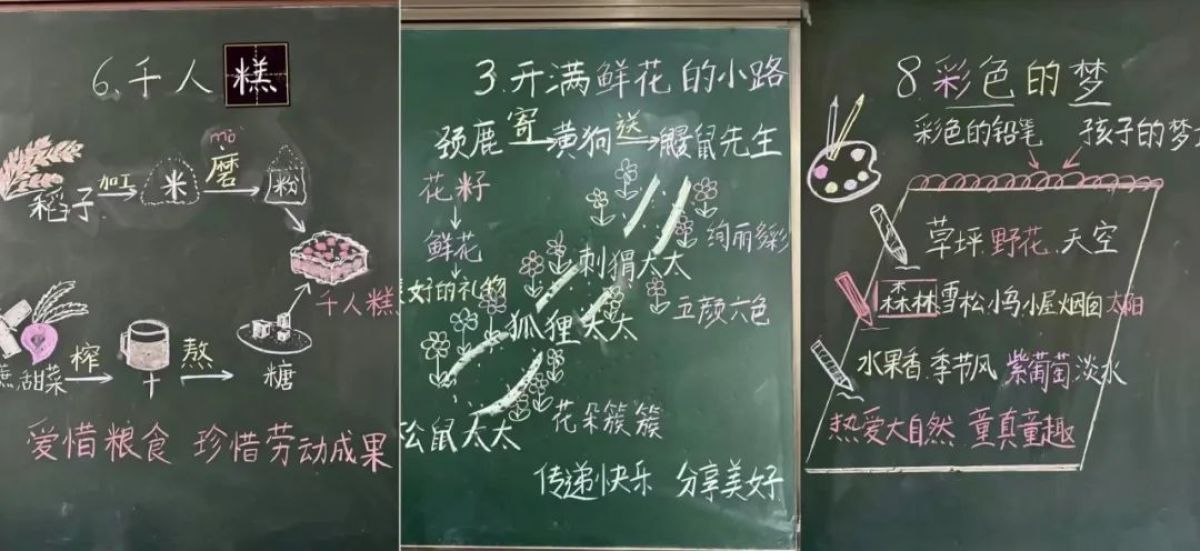 6.千人糕
mò
稻子 加工 米 磨 粉
千人糕
甜菜 榨 汁 熬 糖
爱惜粮食 珍惜劳动成果
3.开满鲜花的小路
颈鹿 寄 黄狗 送 鼹鼠先生
花籽
鲜花
好的礼物
绚丽多彩
刺猬太太
五颜六色
狐狸太太
花朵簇簇
松鼠太太
传递快乐 分享美好
8.彩色的梦
彩色的铅笔 孩子的梦
草坪.野花.天空
森林雪松.小鸟.小屋烟囱太阳
水果香.季节风 紫葡萄.淡水
热爱大自然 童真童趣